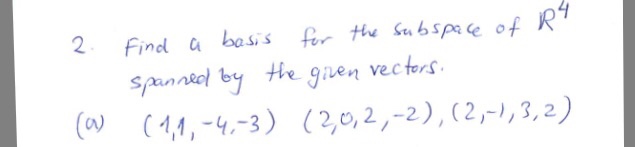 2. Find a basis for the subspace of ℝ⁴
spanned by the given vectors.
(a) (1,1,-4,-3) (2,0,2,-2), (2,-1,3,2)